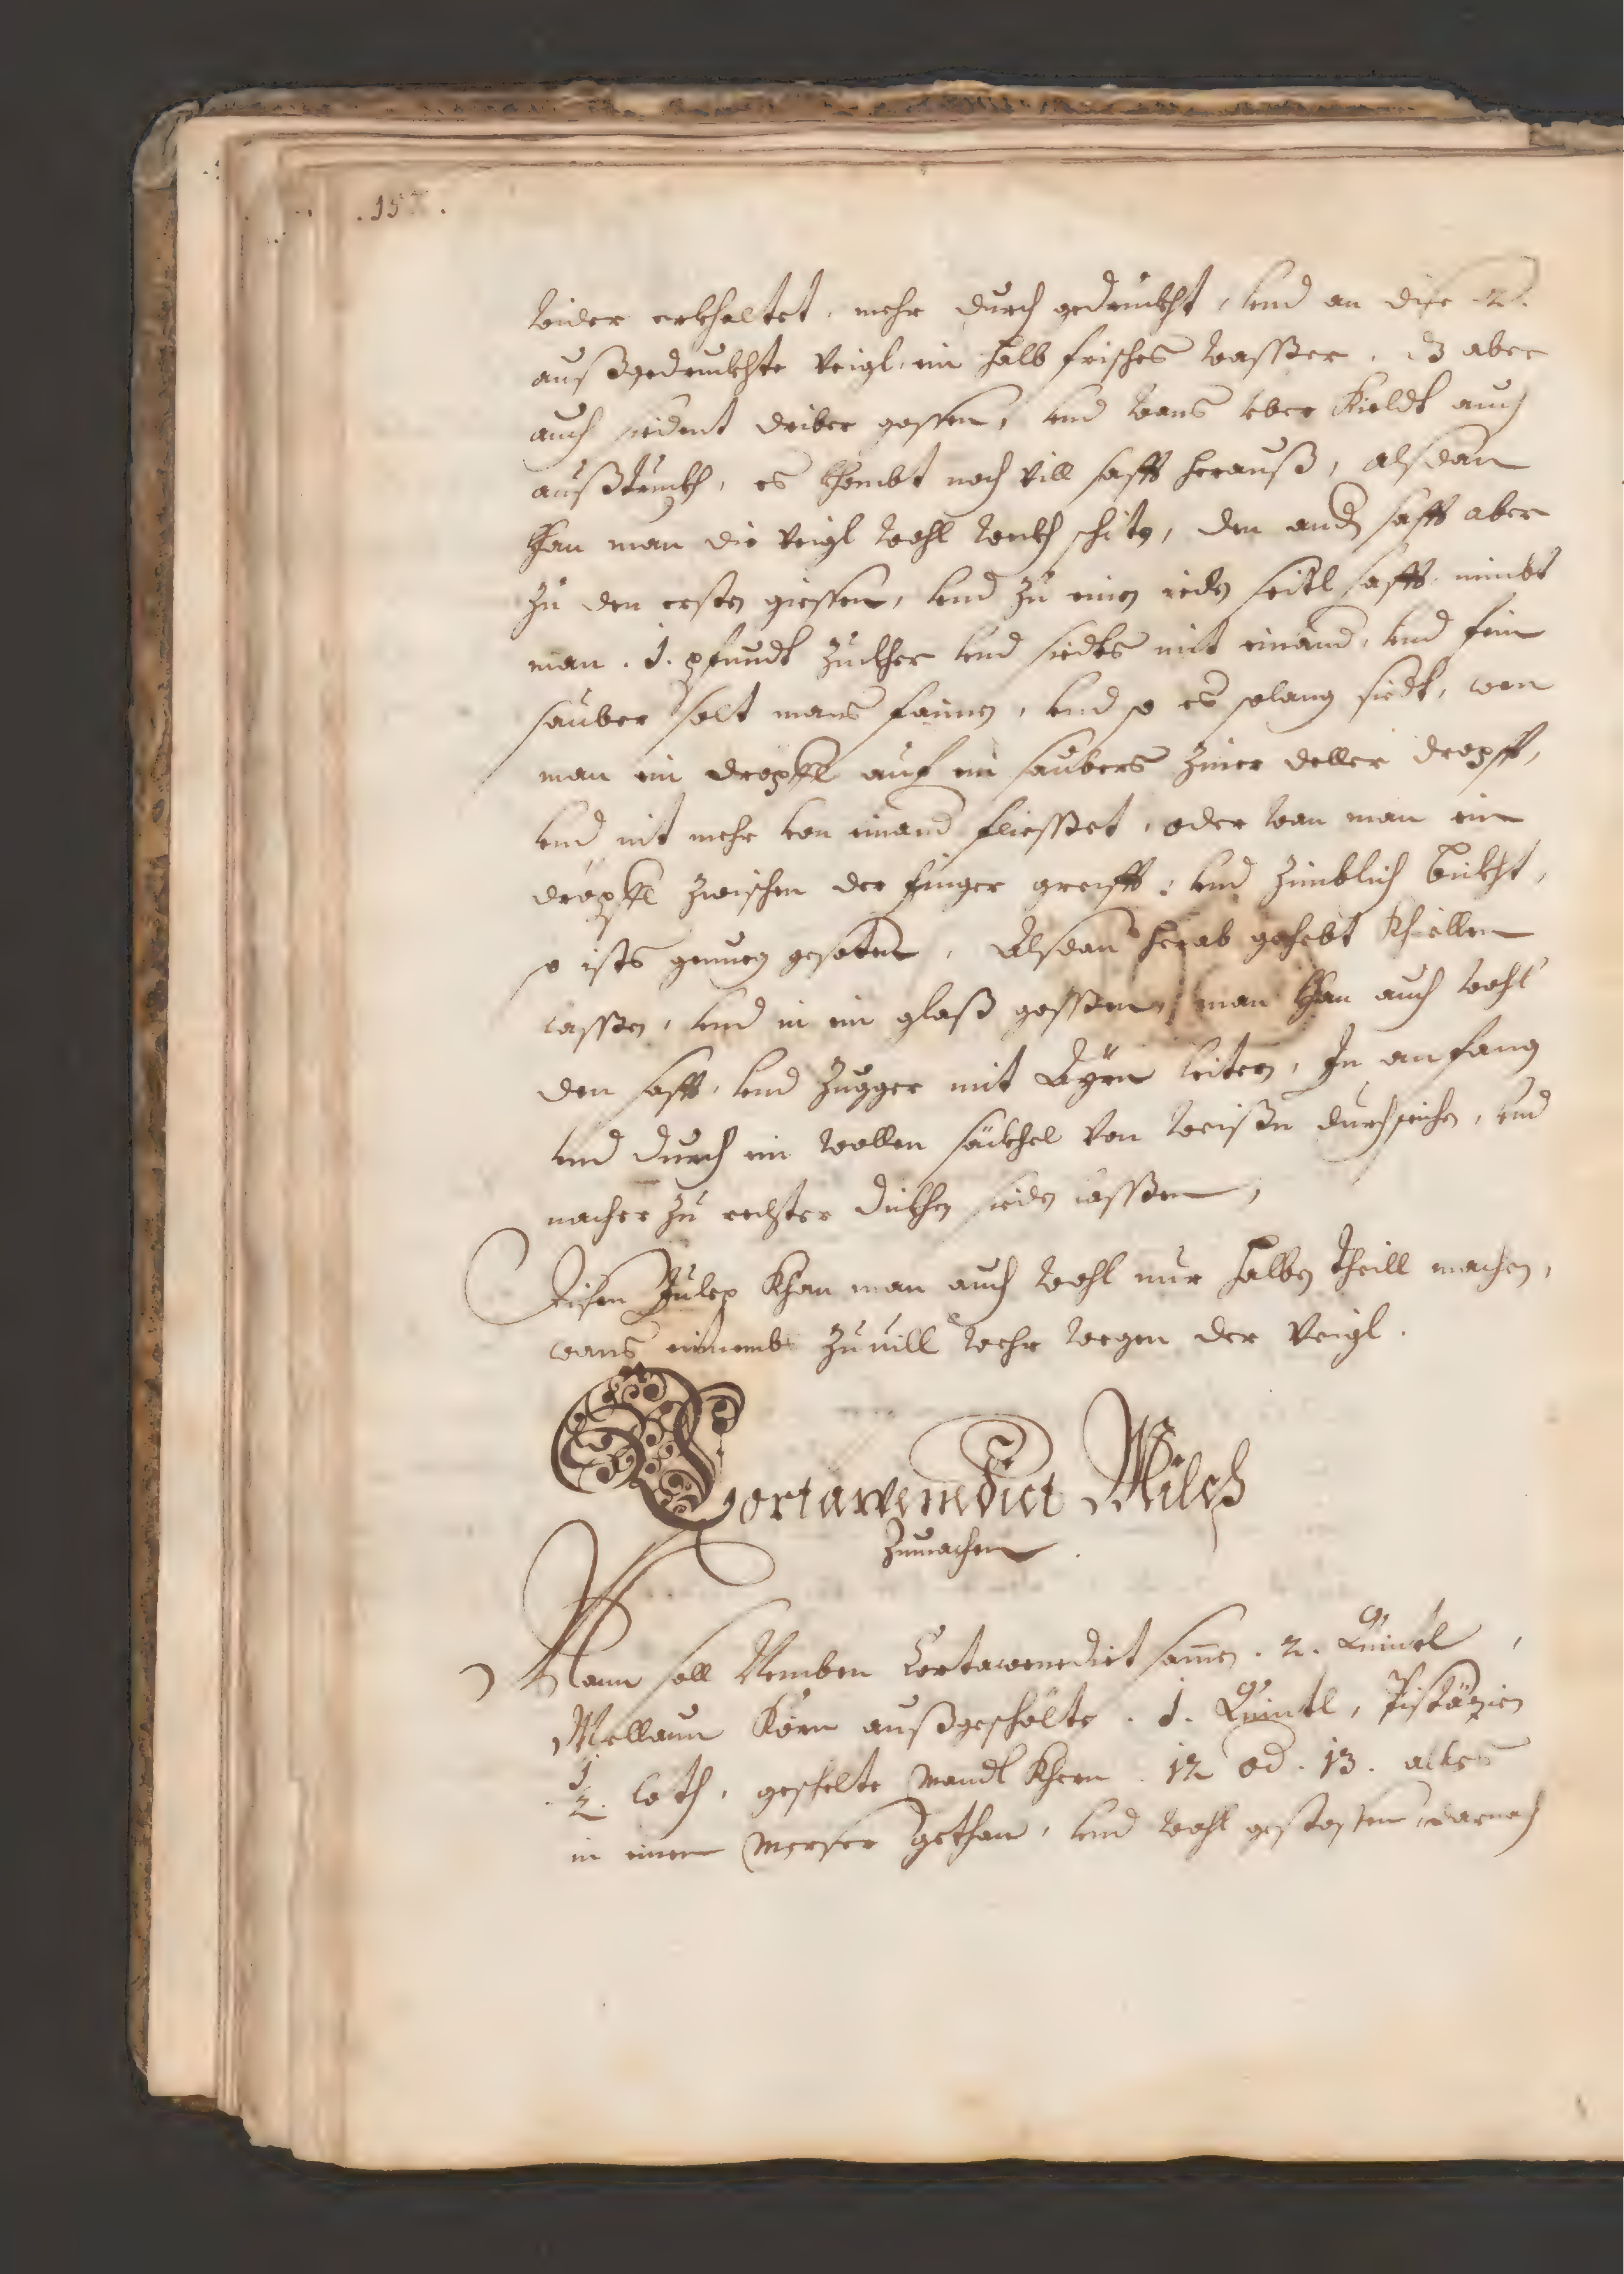 wider erkhaltet, mehr durch gedruckht, vnd an dise 2.
außgedruckhte Veigl, ein halb frisches wasser, dz aber
auch siedent driber gossen, vnd wans vber Kieldt auch
außtruckh, es khombt noch vill safft herauß, alsdan
khan man die Veigl wohl weckh schitn, den andn safft aber
zu den ersten giessen, vnd zu einen ieden seitl safft nimbt
man .1. pfundt zuckher vnd siedts mit einand, vnd fein
sauber solt mans faimen, vnd so es solang siedt, wen
man ein dropffl auf ein saubers ziner deller dropfft,
vnd nit mehr von einand fliesset, oder wan man ein
dropffl zwischen der finger greifft, vnd zimblich bickht,
so ists genueg gesoten, Alsdan herab gehebt Khiellen
lassen, vnd in ein glaß gossen, man khan auch wohl
den safft, vnd Zugger mit Ayrn leitern, In anfang
vnd durch ein wollen säckhel von weissen durchseichen, vnd
nacher zu rechter dickhen sieden lassen,
Disen Julep Khan man auch wohl nur halben theill machen,
wans einemb zuuill wehr wegen der Veigl.
Cortawenedict Milch
Zumachen.
Mann soll Nemben Cortawenedict samen .2. Quintl,
Mellaun Körn außgeschölte .1. Quintl, Pistäzien
.1/2. loth, geschelte Mandl Khern .12 od .13. alles
in einen Merser gethan, vnd wohl gestossen, darnach